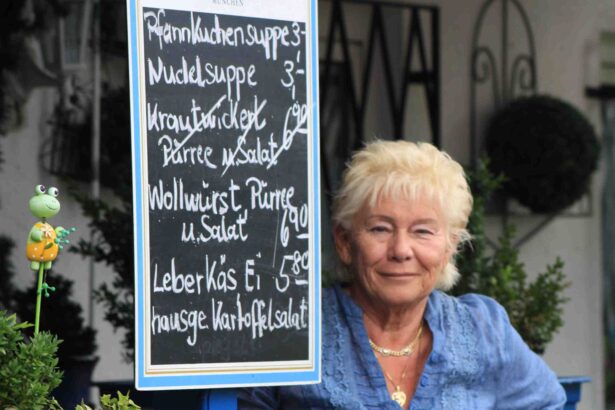 MÜNCHEN
Pfannkuchensuppe 3,-
Nudelsuppe 3,-
Krautwickerl 6,90
Pürree u. Salat
Wollwürst Pürree
u. Salat 6,90
Leberkäs Ei 5,80
hausge. Kartoffelsalat